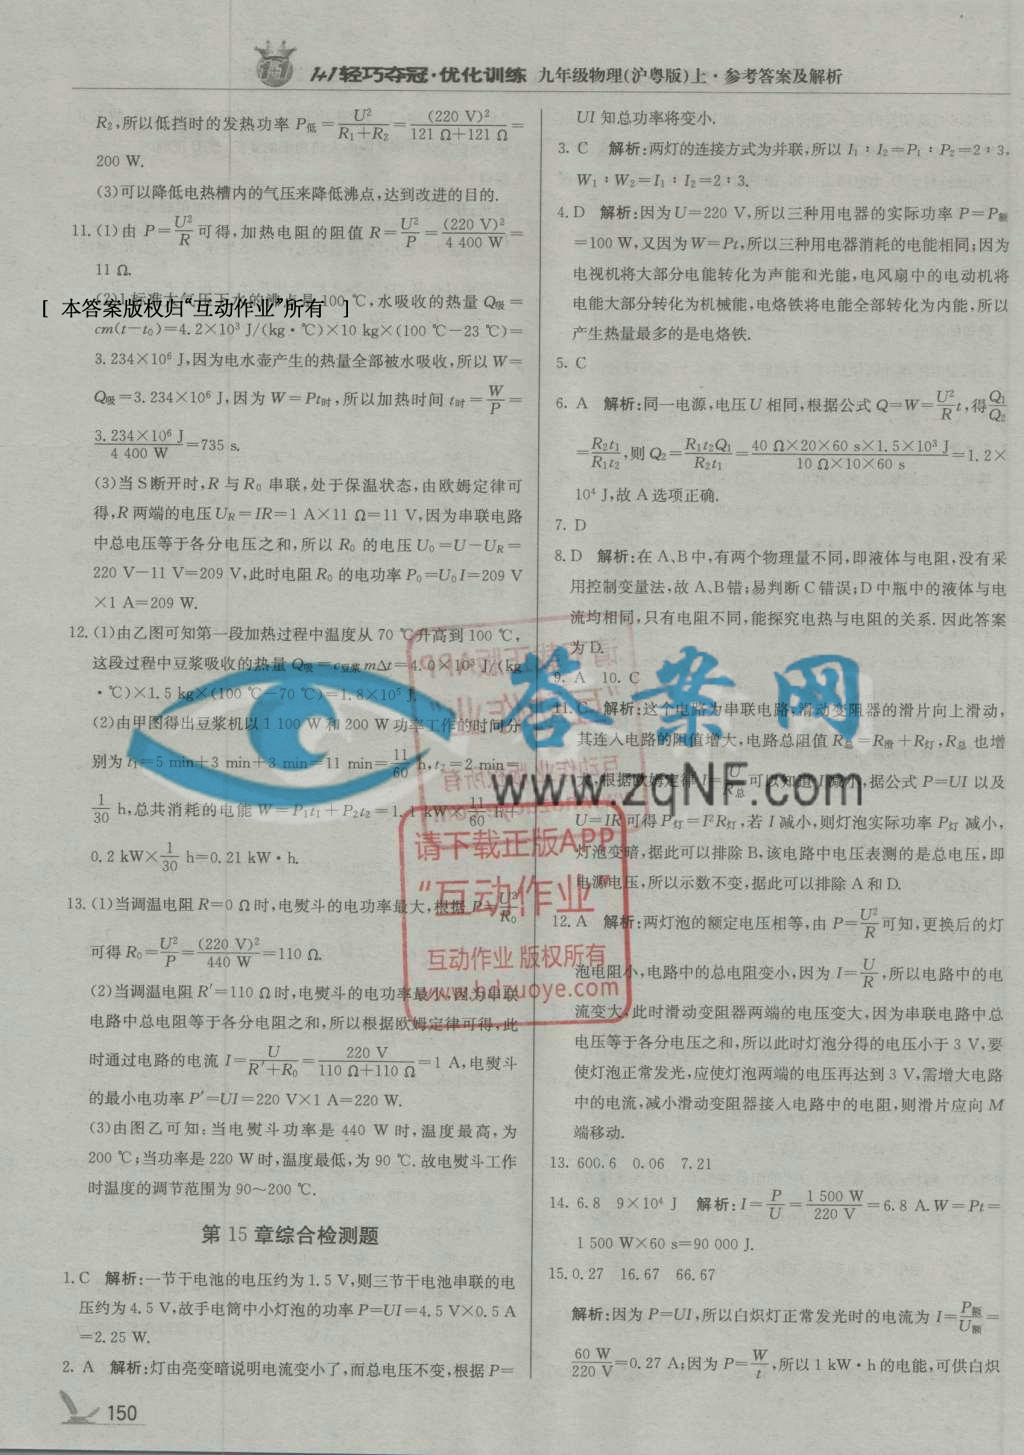 1+1轻巧夺冠·优化训练 九年级物理(沪粤版)上·参考答案及解析
R₂,所以低挡时的发热功率 P低=U²/(R₁+R₂)=(220 V)²/(121 Ω+121 Ω)=
200 W.
(3)可以降低电热槽内的气压来降低沸点,达到改进的目的.
11.(1)由 P=U²/R 可得,加热电阻的阻值 R=U²/P=(220 V)²/(4 400 W)=
11 Ω.
(2)1标准大气压下水的沸点是100 ℃,水吸收的热量 Q吸=
[ 本答案版权归“互动作业”所有 ]
cm(t-t₀)=4.2×10³ J/(kg·℃)×10 kg×(100 ℃-23 ℃)=
3.234×10⁶ J,因为电水壶产生的热量全部被水吸收,所以 W=
Q吸=3.234×10⁶ J,因为 W=Pt时,所以加热时间 t时=W/P=
3.234×10⁶ J/4 400 W=735 s.
(3)当 S 断开时,R 与 R₀ 串联,处于保温状态,由欧姆定律可
得,R 两端的电压 U_R=IR=1 A×11 Ω=11 V,因为串联电路
中总电压等于各分电压之和,所以 R₀ 的电压 U₀=U-U_R=
220 V-11 V=209 V,此时电阻 R₀ 的电功率 P₀=U₀I=209 V
×1 A=209 W.
12.(1)由乙图可知第一段加热过程中温度从 70 ℃升高到 100 ℃,
这段过程中豆浆吸收的热量 Q吸=c豆浆mΔt=4.0×10³ J/(kg
·℃)×1.5 kg×(100 ℃-70 ℃)=1.8×10⁵ J.
(2)由甲图得出豆浆机以 1 100 W 和 200 W 功率工作的时间分
别为 t₁=5 min+3 min+3 min=11 min=11/60 h,t₂=2 min=
1/30 h,总共消耗的电能 W=P₁t₁+P₂t₂=1.1 kW×11/60 h+
0.2 kW×1/30 h=0.21 kW·h.
13.(1)当调温电阻 R=0 Ω 时,电熨斗的电功率最大,根据 P=U²/R₀
可得 R₀=U²/P=(220 V)²/440 W=110 Ω.
(2)当调温电阻 R′=110 Ω 时,电熨斗的电功率最小,因为串联
电路中总电阻等于各分电阻之和,所以根据欧姆定律可得,此
时通过电路的电流 I=U/(R′+R₀)=220 V/(110 Ω+110 Ω)=1 A,电熨斗
的最小电功率 P′=UI=220 V×1 A=220 W.
(3)由图乙可知:当电熨斗功率是 440 W 时,温度最高,为
200 ℃;当功率是 220 W 时,温度最低,为 90 ℃.故电熨斗工作
时温度的调节范围为 90~200 ℃.
第 15 章综合检测题
1. C 解析:一节干电池的电压约为 1.5 V,则三节干电池串联的电
压约为 4.5 V,故手电筒中小灯泡的功率 P=UI=4.5 V×0.5 A
=2.25 W.
2. A 解析:灯由亮变暗说明电流变小了,而总电压不变,根据 P=
150
UI 知总功率将变小.
3. C 解析:两灯的连接方式为并联,所以 I₁∶I₂=P₁∶P₂=2∶3.
W₁∶W₂=I₁∶I₂=2∶3.
4. D 解析:因为 U=220 V,所以三种用电器的实际功率 P=P额
=100 W,又因为 W=Pt,所以三种用电器消耗的电能相同;因为
电视机将大部分电能转化为声能和光能,电风扇中的电动机将
电能大部分转化为机械能,电烙铁将电能全部转化为内能,所以
产生热量最多的是电烙铁.
5. C
6. A 解析:同一电源,电压 U 相同,根据公式 Q=W=U²/R t,得Q₁/Q₂
=R₂t₁/R₁t₂,则 Q₂=R₁t₂Q₁/R₂t₁=40 Ω×20×60 s×1.5×10³ J/10 Ω×10×60 s=1.2×
10⁴ J,故 A 选项正确.
7. D
8. D 解析:在 A、B 中,有两个物理量不同,即液体与电阻,没有采
用控制变量法,故 A、B 错;易判断 C 错误;D 中瓶中的液体与电
流均相同,只有电阻不同,能探究电热与电阻的关系.因此答案
为 D.
9. A 10. C
11. C 解析:这个电路为串联电路,滑动变阻器的滑片向上滑动,
其连入电路的阻值增大,电路总阻值 R总=R滑+R灯,R总 也增
大,根据欧姆定律 I=U/R总可以知道 I 减小,据公式 P=UI 以及
U=IR 可得 P灯=I²R灯,若 I 减小,则灯泡实际功率 P灯 减小,
灯泡变暗,据此可以排除 B,该电路中电压表测的是总电压,即
电源电压,所以示数不变,据此可以排除 A 和 D.
12. A 解析:两灯泡的额定电压相等,由 P=U²/R可知,更换后的灯
泡电阻小,电路中的总电阻变小,因为 I=U/R,所以电路中的电
流变大,此时滑动变阻器两端的电压变大,因为串联电路中总
电压等于各分电压之和,所以此时灯泡分得的电压小于 3 V,要
使灯泡正常发光,应使灯泡两端的电压再达到 3 V,需增大电路
中的电流,减小滑动变阻器接入电路中的电阻,则滑片应向 M
端移动.
13. 600.6 0.06 7.21
14. 6.8 9×10⁴ J 解析:I=P/U=1 500 W/220 V=6.8 A.W=Pt=
1 500 W×60 s=90 000 J.
15. 0.27 16.67 66.67
解析:因为 P=UI,所以白炽灯正常发光时的电流为 I=P额/U额=
60 W/220 V=0.27 A;因为 P=W/t,所以 1 kW·h 的电能,可供白炽
答案网
www.zqNF.com
请下载正版APP
“互动作业”
互动作业 版权所有